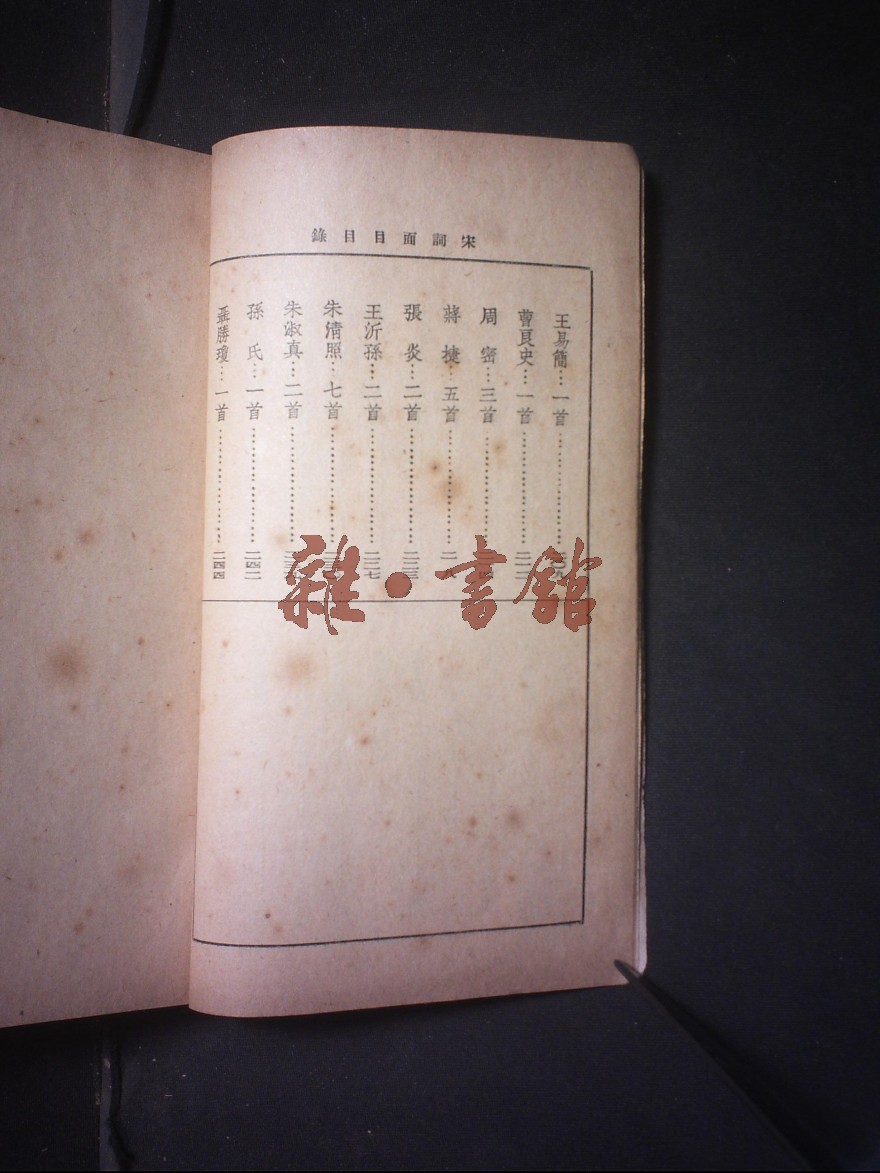 宋詞面目目錄
王易簡…一首
曹良史…一首…二一二
周密…三首
蔣捷…五首
張炎…二首…二二三
王沂孫…二首…二二七
朱清照…七首
朱淑真…二首
孫氏…一首…二四二
聶勝瓊…一首…二四四
雜·書館